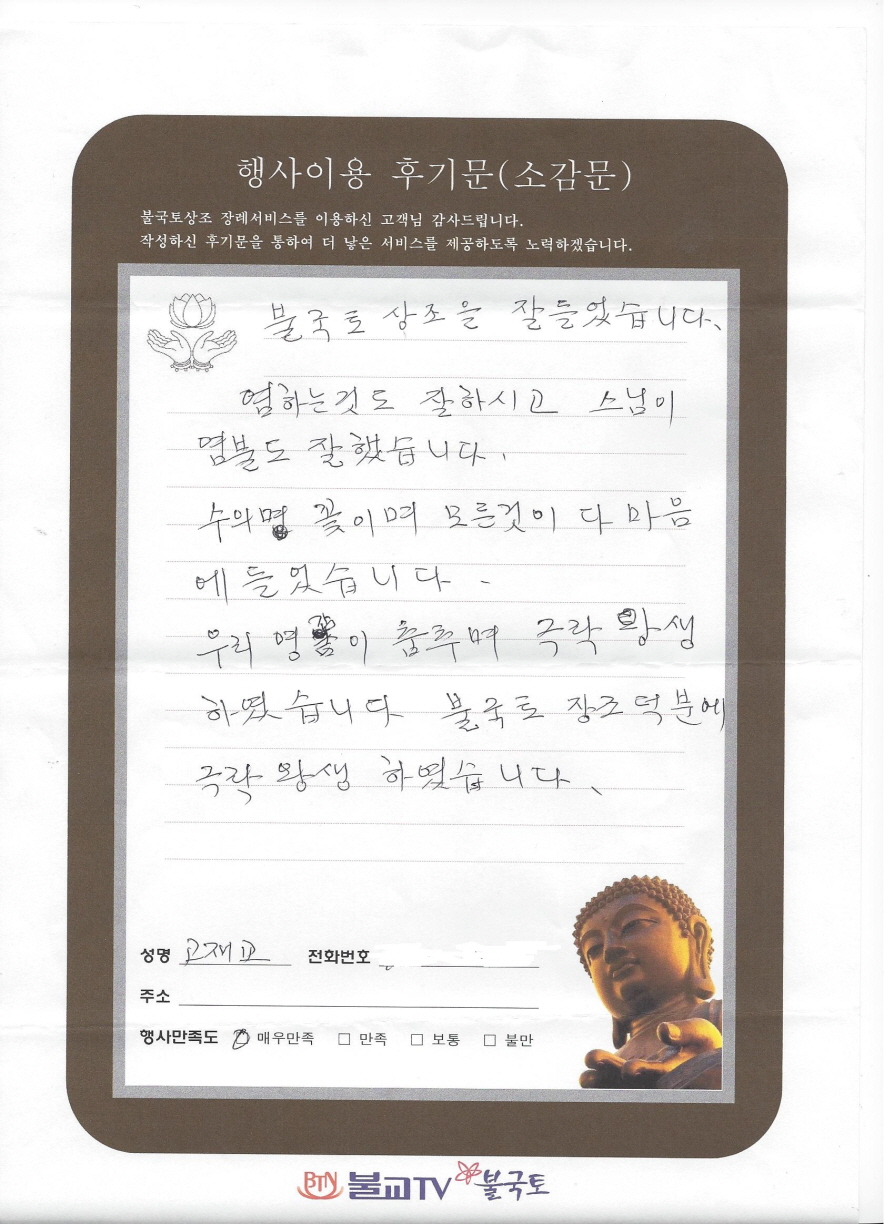 행사이용 후기문(소감문)
불국토상조 장례서비스를 이용하신 고객님 감사드립니다.
작성하신 후기문을 통하여 더 낳은 서비스를 제공하도록 노력하겠습니다.
불국토 상조을 잘들었습니다.
염하는것도 잘하시고 스님이
염불도 잘했습니다.
수의며 꽃이며 모른것이 다 마음
에 들었습니다.
우리 영감이 춤추며 극락 왕생
하였습니다 불국토 장조덕분에
극락 왕생 하였습니다.
성명 고재교 전화번호
주소
행사만족도 매우만족 □ 만족 □ 보통 □ 불만
BTN 불교TV 불국토